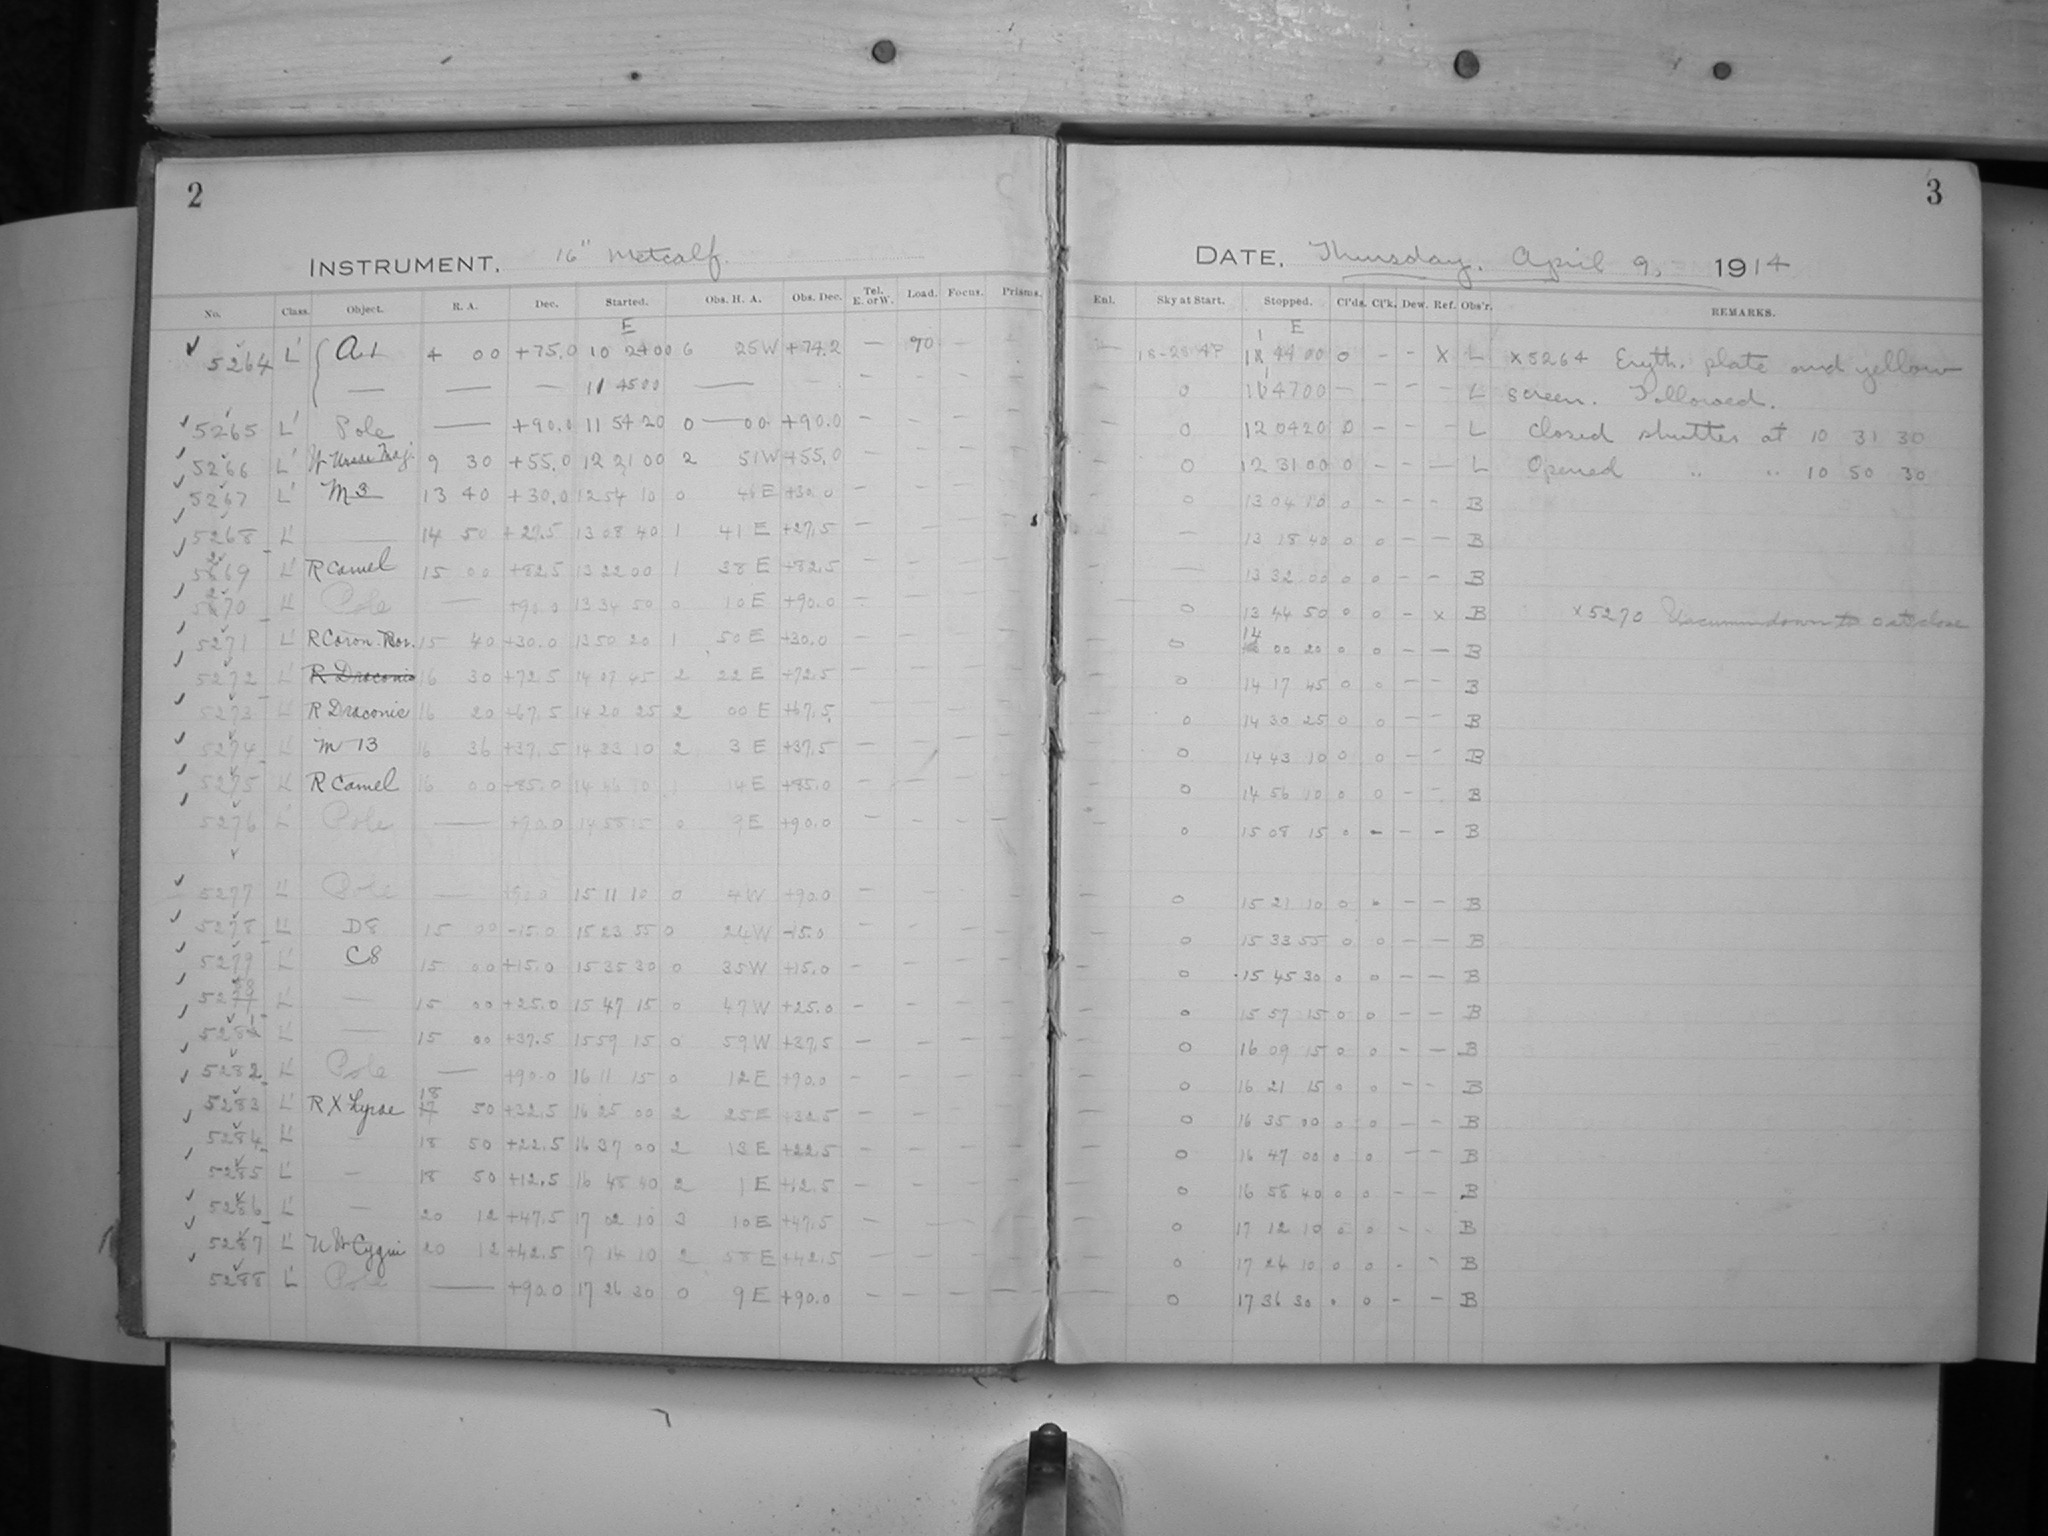 2
INSTRUMENT. 16" Metcalf.
No. Class. Object. R. A. Dec. Started. Obs. H. A. Obs. Dec. Tel. E. or W. Load. Focus. Prisms.
E
5264 L' + 00 +75.0 10 24 00 6 25 W +74.2 — 90 —
— — — 11 45 00 — — —
5265 L' Pole — +90.0 11 54 20 0 — 00 +90.0 — — — —
5266 L' W Ursae Maj. 9 30 +55.0 12 21 00 2 51 W +55.0 — — — —
5267 L' M 3 13 40 +30.0 12 54 10 0 46 E +30.0 — — — —
5268 L' — 14 50 +27.5 13 08 40 1 41 E +27.5 — — — —
5269 L' R Camel 15 00 +82.5 13 22 00 1 38 E +82.5 — — — —
5270 L' Pole — +90.0 13 34 50 0 10 E +90.0 — — — —
5271 L' R Coron. Bor. 15 40 +30.0 13 50 20 1 50 E +30.0 — — — —
5272 L' R Draconis 16 30 +72.5 14 07 45 2 22 E +72.5 — — — —
5273 L' R Draconis 16 20 +67.5 14 20 25 2 00 E +67.5 — — — —
5274 L' M 13 16 36 +37.5 14 33 10 2 3 E +37.5 — — — —
5275 L' R Camel 16 00 +85.0 14 46 10 1 14 E +85.0 — — — —
5276 L' Pole — +90.0 14 58 15 0 9 E +90.0 — — — —
5277 L' Pole — +90.0 15 11 10 0 4 W +90.0 — — — —
5278 L' D8 15 00 -15.0 15 23 55 0 24 W -15.0 — — — —
5279 L' C8 15 00 +15.0 15 35 30 0 35 W +15.0 — — — —
5280 L' — 15 00 +25.0 15 47 15 0 47 W +25.0 — — — —
5281 L' — 15 00 +37.5 15 59 15 0 59 W +37.5 — — — —
5282 L' Pole — +90.0 16 11 15 0 12 E +90.0 — — — —
5283 L' R X Lyrae 18 17 50 +32.5 16 25 00 2 25 E +32.5 — — — —
5284 L' — 18 50 +22.5 16 37 00 2 13 E +22.5 — — — —
5285 L' — 18 50 +12.5 16 48 40 2 1 E +12.5 — — — —
5286 L' — 20 12 +47.5 17 02 10 3 10 E +47.5 — — — —
5287 L' Cygni 20 12 +42.5 17 14 10 2 58 E +42.5 — — — —
5288 L' Pole — +90.0 17 26 30 0 9 E +90.0 — — — —
3
DATE. Thursday, April 9, 1914
Enl. Sky at Start. Stopped. Cl'ds. Cl'k. Dew. Ref. Obs'r. REMARKS.
E
44 00 0 — — X L x 5264 Eryth. plate and yellow
0 47 00 — — — — L screen. Followed.
— 0 12 04 20 0 — — — L Closed shutter at 10 31 30
— 0 12 31 00 0 — — — L Opened " " 10 50 30
— 0 13 04 10 0 — — — B
— — 13 18 40 0 0 — — B
— — 13 32 00 0 0 — — B
— 0 13 44 50 0 0 — x B x 5270 Vacuum down to 0 at close
— 0 14 00 20 0 0 — — B
— 0 14 17 45 0 0 — — B
— 0 14 30 25 0 0 — — B
— 0 14 43 10 0 0 — — B
— 0 14 56 10 0 0 — — B
— 0 15 08 15 0 — — — B
— 0 15 21 10 0 0 — — B
— 0 15 33 55 0 0 — — B
— 0 15 45 30 0 0 — — B
— 0 15 57 15 0 0 — — B
— 0 16 09 15 0 0 — — B
— 0 16 21 15 0 0 — — B
— 0 16 35 00 0 0 — — B
— 0 16 47 00 0 0 — — B
— 0 16 58 40 0 0 — — B
— 0 17 12 10 0 0 — — B
— 0 17 24 10 0 0 — — B
— 0 17 36 30 0 0 — — B